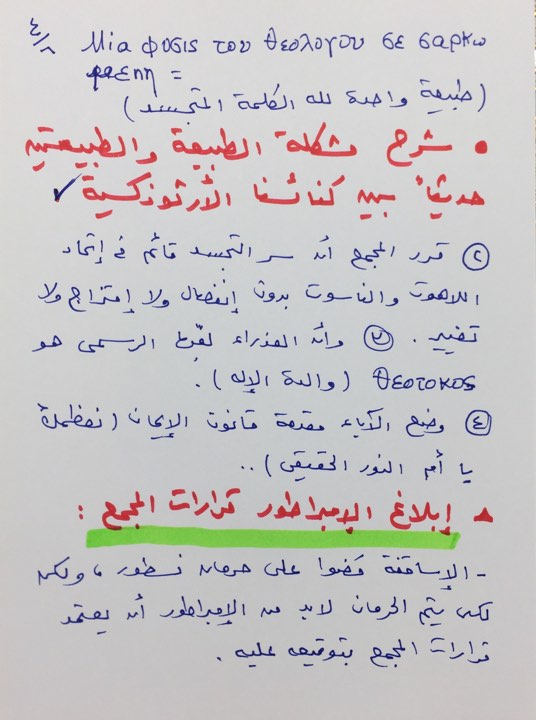 ٤/٨ Mia φυσις του θεολογου σε σαρκω
μενη =
(طبيعة واحدة لله الكلمة المتجسد)
• شرح مشكلة الطبيعة والطبيعتين
حديثاً بين كنائسنا الأرثوذكسية ✓
② قرر المجمع أن سر التجسد قائم في إتحاد
اللاهوت والناسوت بدون إنفصال ولا إمتزاج ولا
تغيير. ③ وأن العذراء لقبها الرسمى هو
θεοτοκος (والدة الإله).
④ وضع الآباء مقدمة قانون الإيمان (نعظمك
يا أم النور الحقيقى)..
▲ إبلاغ الإمبراطور قرارات المجمع :
- الإساقفة مضوا على حرمان نسطور، ولكن
لكى يتم الحرمان لابد من الإمبراطور أن يعتمد
قرارات المجمع بتوقيعه عليه.